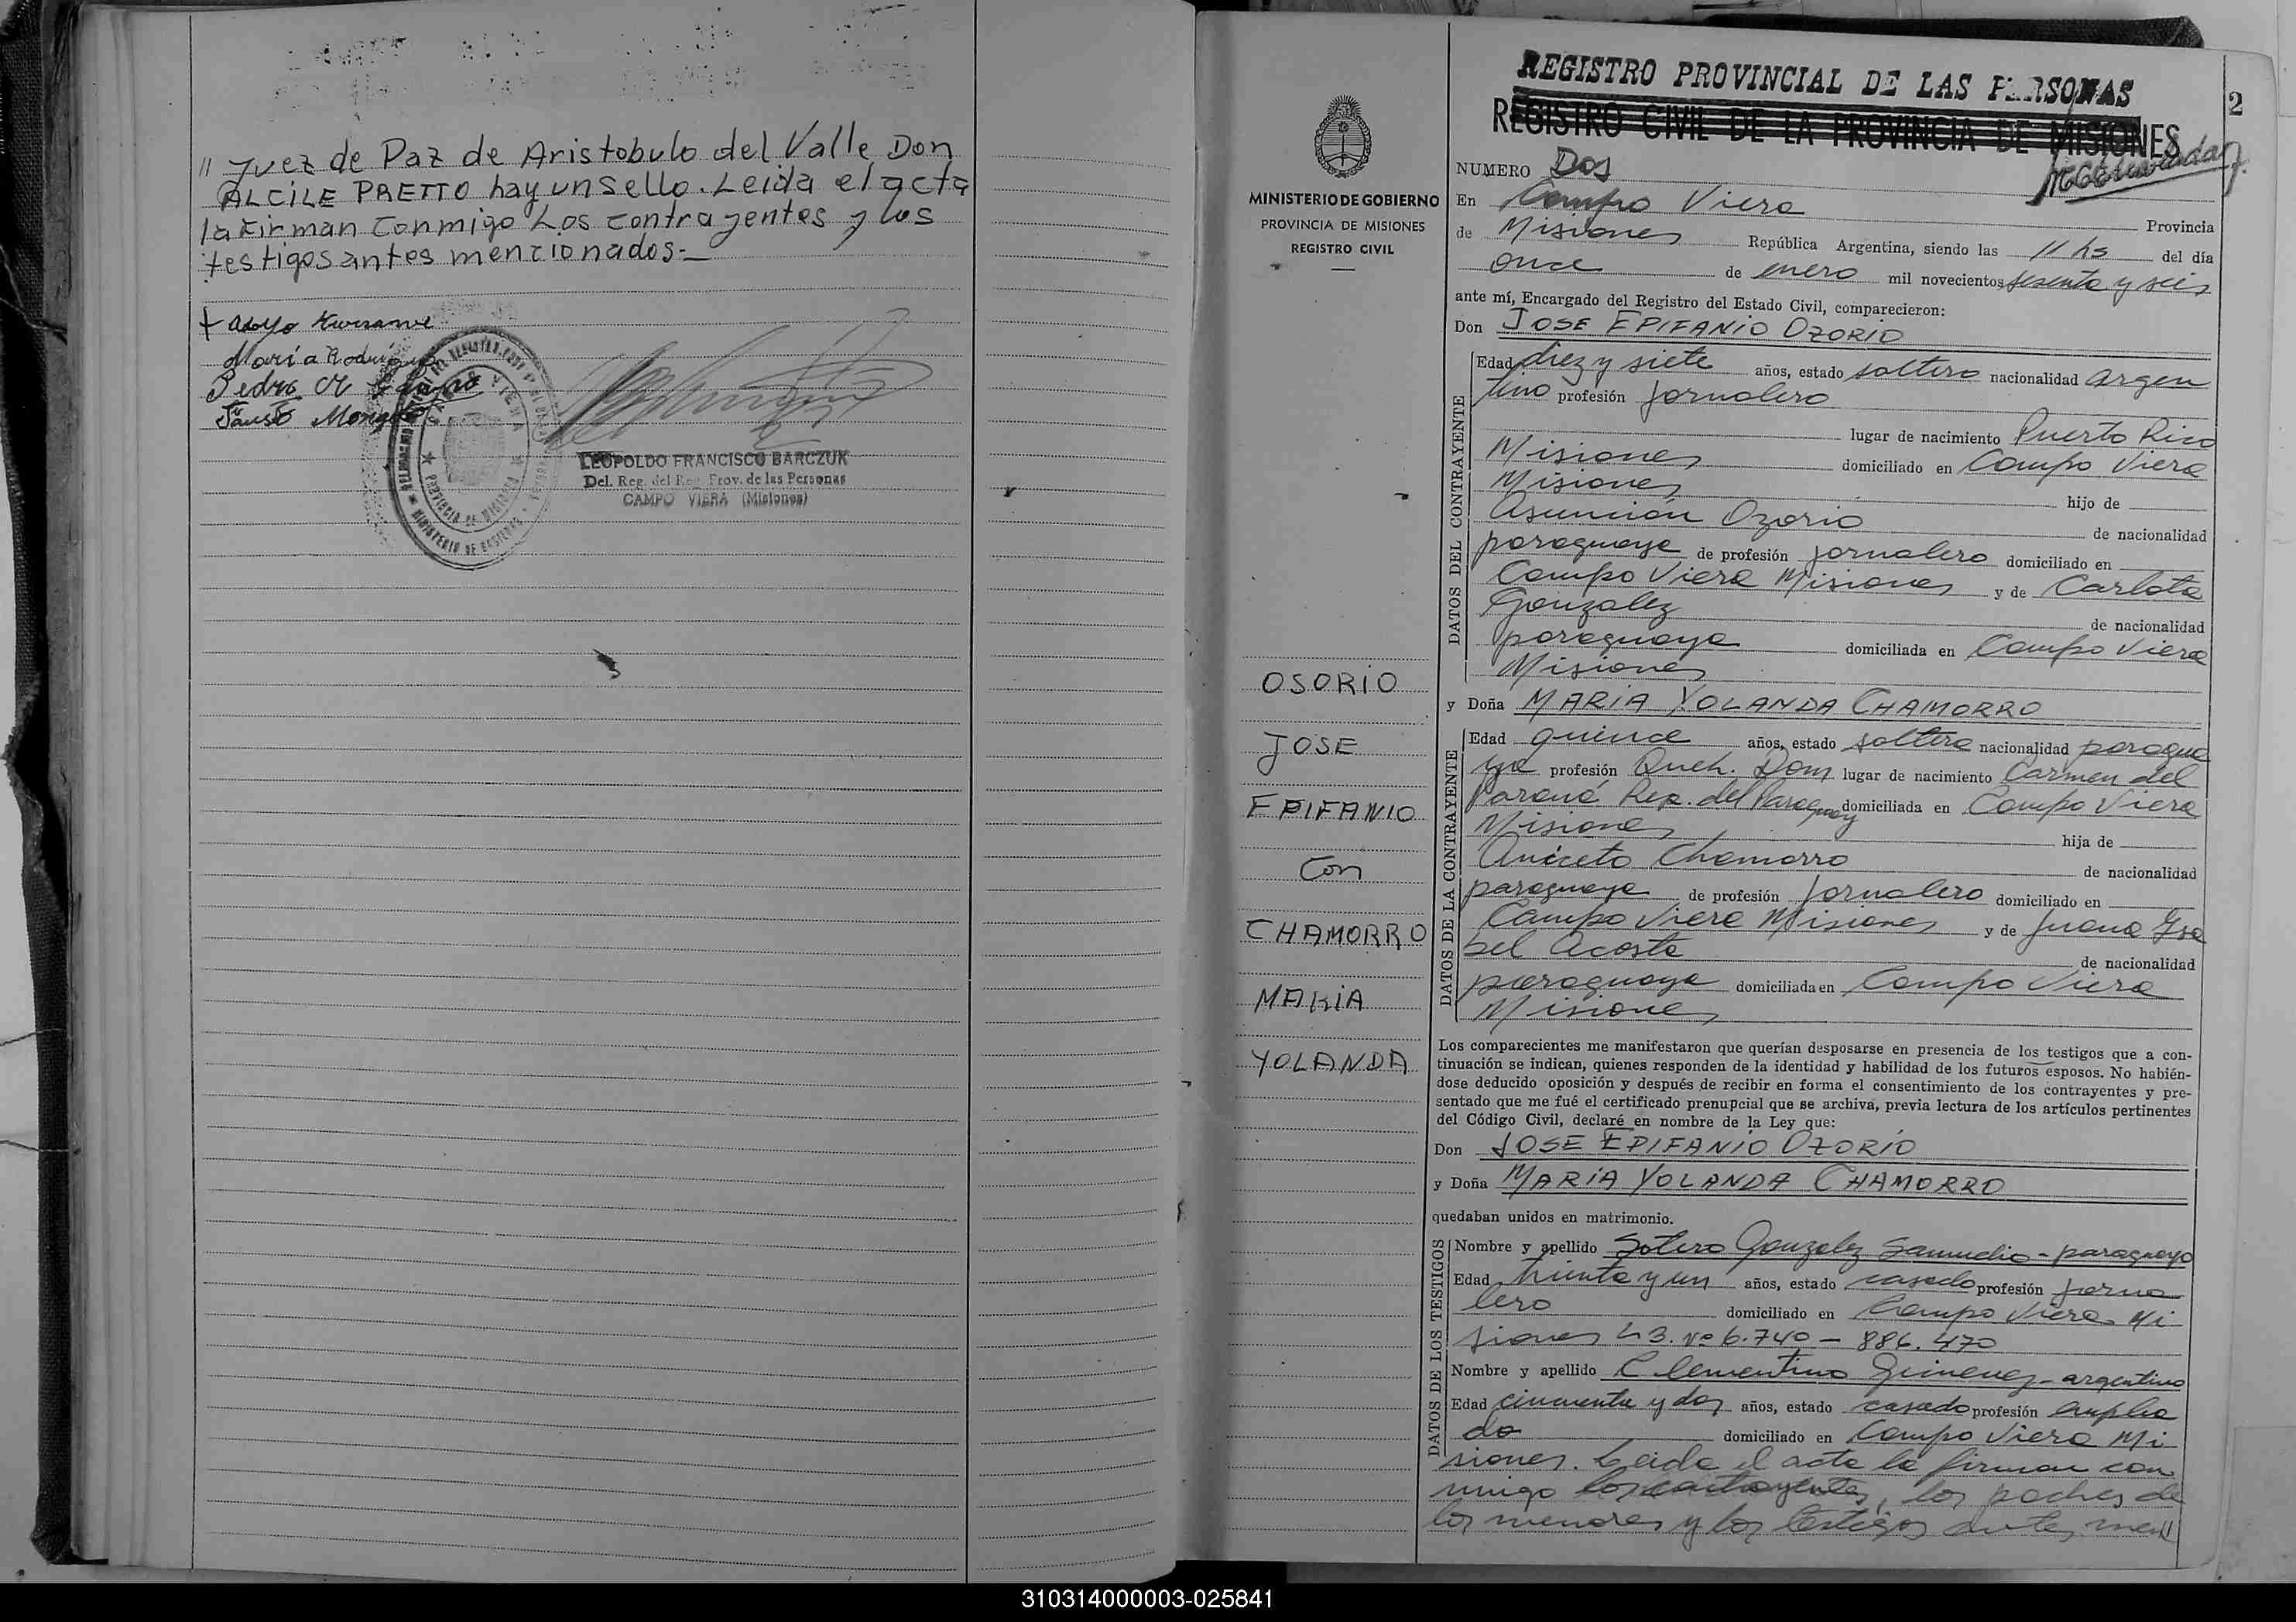 " Juez de Paz de Aristobulo del Valle Don
ALCILE PRETTO hay un sello. Leida el acta
la Firman conmigo Los contrayentes y los
testigos antes mencionados.-
María
Pedro
LEOPOLDO FRANCISCO BARCZUK
Del. Reg. del Reg. Prov. de las Personas
CAMPO VIERA (Misiones)
MINISTERIO DE GOBIERNO
PROVINCIA DE MISIONES
REGISTRO CIVIL
OSORIO
JOSE
EPIFANIO
Con
CHAMORRO
MARIA
YOLANDA
REGISTRO PROVINCIAL DE LAS PERSONAS
2
REGISTRO CIVIL DE LA PROVINCIA DE MISIONES
NUMERO DOS
En Campo Viera Provincia
de Misiones República Argentina, siendo las 11 hs del día
once de enero mil novecientos sesenta y seis
ante mí, Encargado del Registro del Estado Civil, comparecieron:
Don JOSE EPIFANIO OZORIO
DATOS DEL CONTRAYENTE
Edad diez y siete años, estado soltero nacionalidad argen
tino profesión jornalero
lugar de nacimiento Puerto Rico
Misiones domiciliado en Campo Viera
Misiones hijo de
Asunción Ozorio de nacionalidad
paraguaya de profesión jornalero domiciliado en
Campo Viera Misiones y de Carlota
Gonzalez de nacionalidad
paraguaya domiciliada en Campo Viera
Misiones
y Doña MARIA YOLANDA CHAMORRO
DATOS DE LA CONTRAYENTE
Edad quince años, estado soltera nacionalidad paragua
ya profesión Queh. Dom lugar de nacimiento Carmen del
Paraná Rep. del Paraguay domiciliada en Campo Viera
Misiones hija de
Aniceto Chamorro de nacionalidad
paraguaya de profesión jornalero domiciliado en
Campo Viera Misiones y de Juana Ysa
bel Acosta de nacionalidad
paraguaya domiciliada en Campo Viera
Misiones
Los comparecientes me manifestaron que querían desposarse en presencia de los testigos que a con-
tinuación se indican, quienes responden de la identidad y habilidad de los futuros esposos. No habién-
dose deducido oposición y después de recibir en forma el consentimiento de los contrayentes y pre-
sentado que me fué el certificado prenupcial que se archiva, previa lectura de los artículos pertinentes
del Código Civil, declaré en nombre de la Ley que:
Don JOSE EPIFANIO OZORIO
y Doña MARIA YOLANDA CHAMORRO
quedaban unidos en matrimonio.
DATOS DE LOS TESTIGOS
Nombre y apellido Sotero Gonzalez Samudio - paraguayo
Edad treinta y un años, estado casado profesión jorna
lero domiciliado en Campo Viera Mi
siones L 3. Nº 6.740 - 886.470
Nombre y apellido Clementino Gimenez - argentino
Edad cincuenta y dos años, estado casado profesión emplea
do domiciliado en Campo Viera Mi
siones. Leida el acta la firman con
migo los contrayentes, los padres de
los menores y los testigos antes men//
310314000003-025841